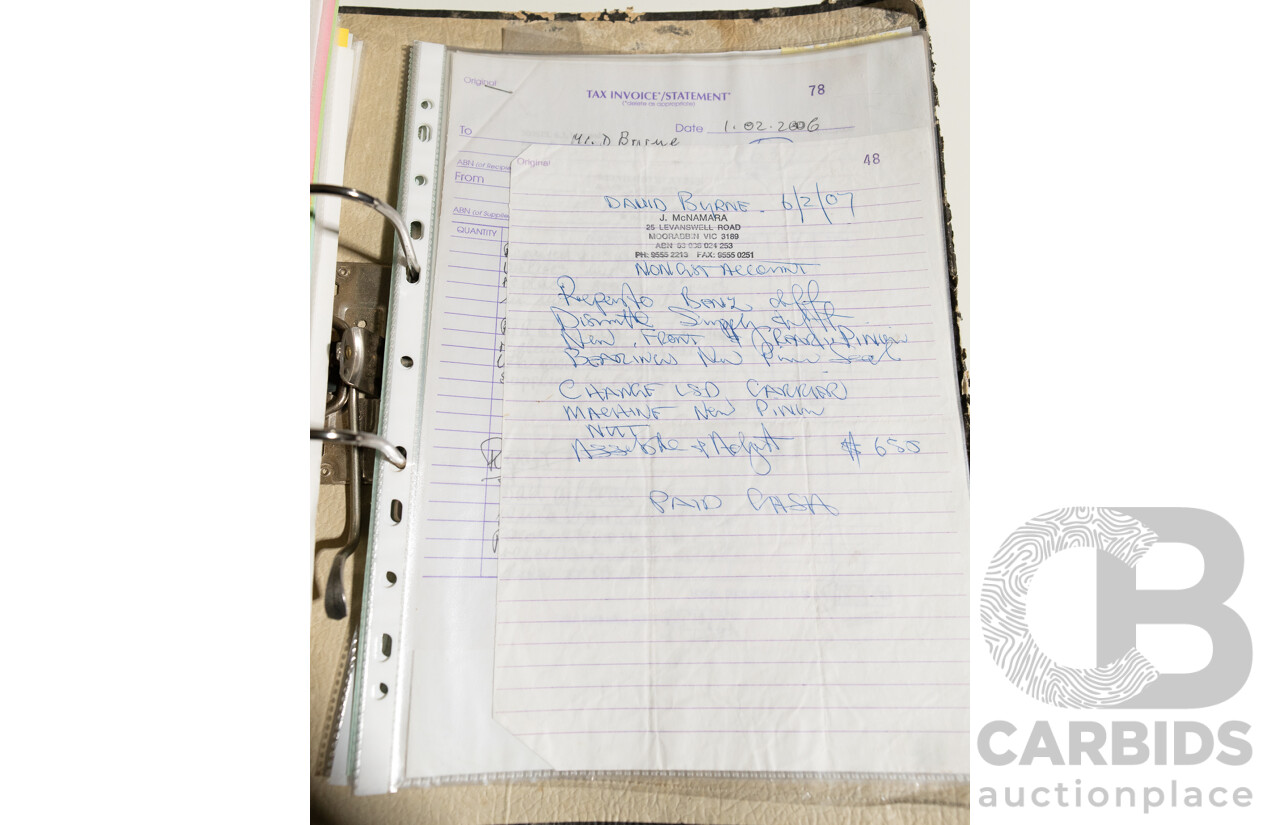 Original
TAX INVOICE*/STATEMENT*
(*delete as appropriate)
78
To Mr. D Byrne
Date 1.02.2006
ABN (of Recipie
From
ABN (of Supplie
QUANTITY
Original
48
DAVID BYRNE. 6/2/07
J. McNAMARA
25 LEVANSWELL ROAD
MOORABBIN VIC 3189
ABN
PH: 9555 2213 FAX: 9555 0251
ACCOUNT
BENZ diff
Dismantle Supply
New FRONT & PINION
BEARINGS New Pinion Seal
CHANGE LSD CARRIER
MACHINE NEW PINION
NUT
Assemble & Adjust $ 655
PAID CASH
CARBIDS
auctionplace